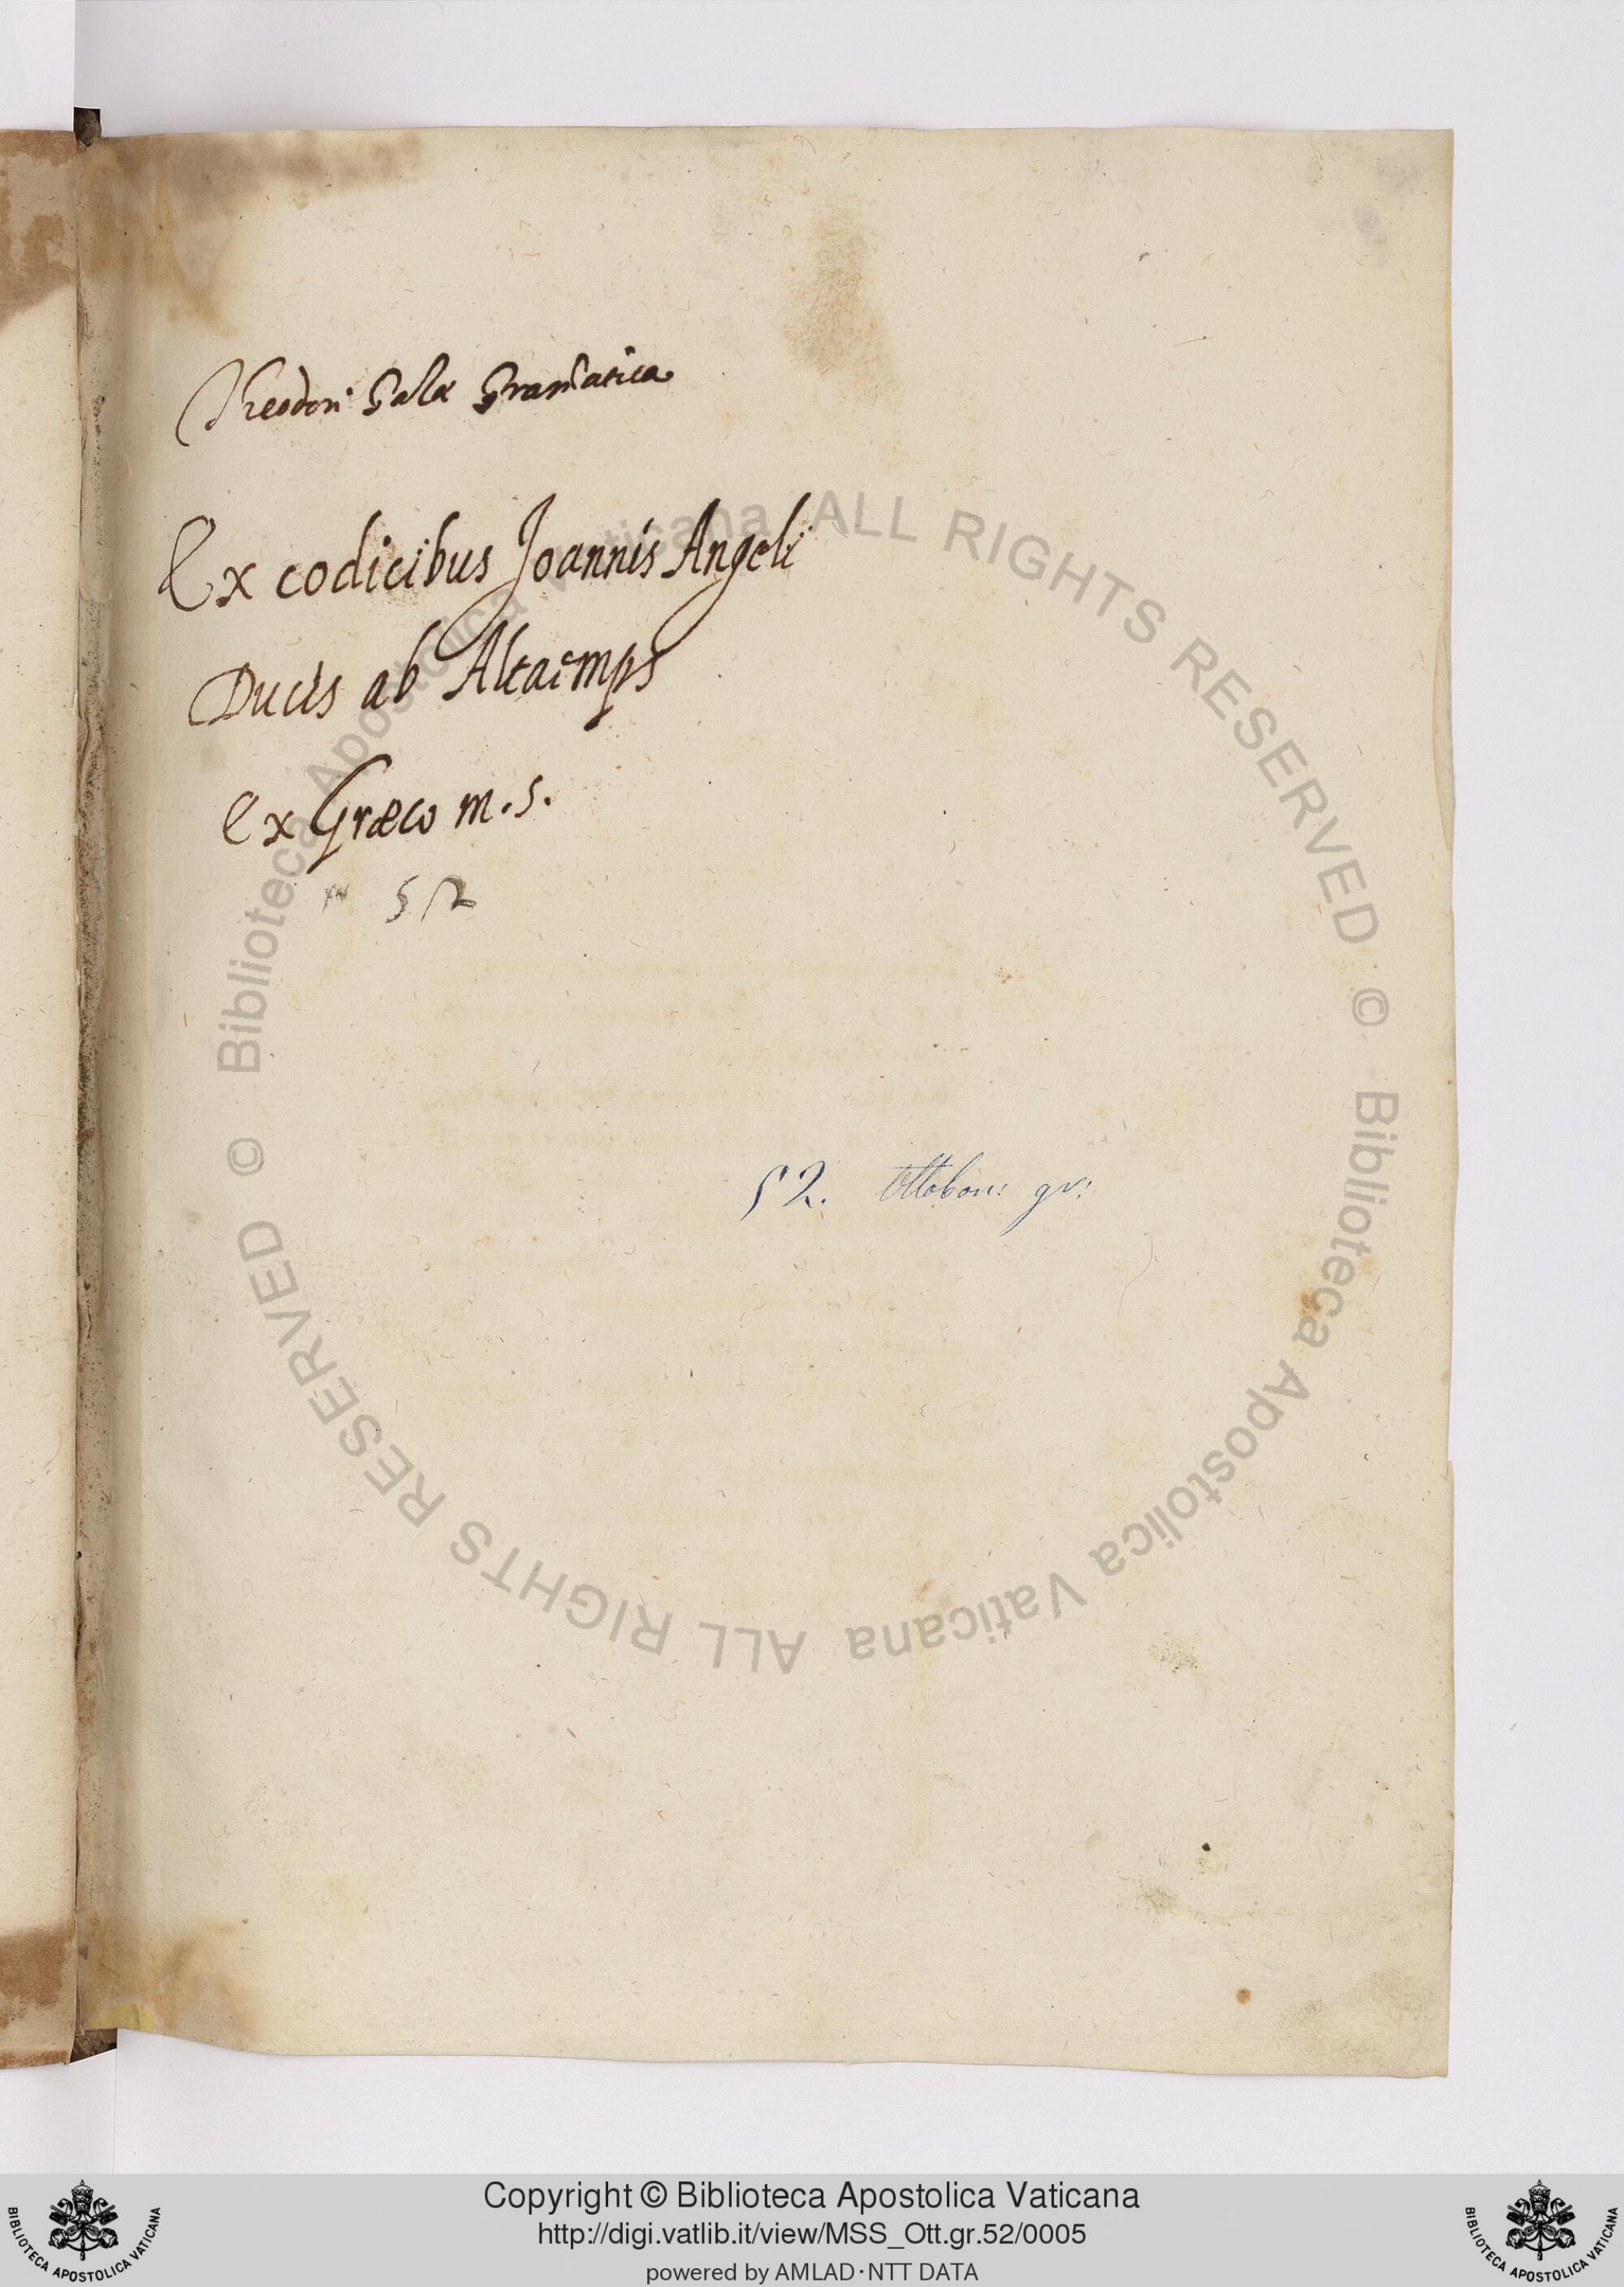 Theodori Gazæ Gramatica
Ex codicibus Joannis Angeli
Ducis ab Altaemps
ex Græco m.s.
52
52. Ottobon: gr:
© Biblioteca Apostolica Vaticana ALL RIGHTS RESERVED
© Biblioteca Apostolica Vaticana ALL RIGHTS RESERVED
Copyright © Biblioteca Apostolica Vaticana
http://digi.vatlib.it/view/MSS_Ott.gr.52/0005
powered by AMLAD·NTT DATA
BIBLIOTECA APOSTOLICA VATICANA
BIBLIOTECA APOSTOLICA VATICANA